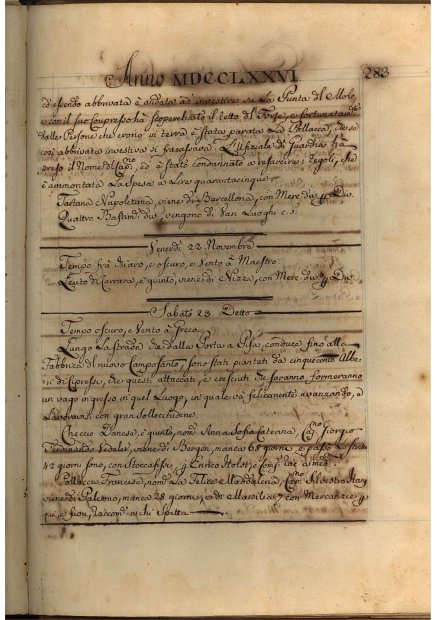 Anno MDCCLXXVI. 283
ed essendo abbrivata è andata ad investire su la Punta del Molo,
e con il suo Coupresso hà scoperchiato il tetto del
dalle Persone che erono in terra è stata parata la Pollacca, che se
così abbrivata investiva si fracassava. L'Ufiziale di Guardia hà
preso il Nome del Cap.no, ed è stato condannato a resarcire i Tegoli, che
è ammontata la Spesa a Lire quarantacinque
Tartana Napoletana, viene di Barcellona, con Merc. div. p Div.
Quattro Bastim. div. vengono di Vari Luoghi e.
Venerdì 22 Novembre
Tempo frà chiaro, e oscuro, e Vento à Maestro.
Leuto di Carrara, è quinto, viene di Nizza, con Merc. div. p Div.
Sabato 23 Detto
Tempo oscuro, e Vento à Greco.
Lungo la strada che dalla Porta a Pisa, conduce fino alla
Fabbrica del nuovo Camposanto, sono stati piantati da cinquecento Albe-
ri di Cipressi, che questi attaccati, e cresciuti che saranno formeranno
un vago ingresso in quel Luogo, in quale và felicemente avanzando, e
con gran sollecitudine.
Checcio Danese, è quinto, nom. Anna Sofia Caterina, Cap.no Giorgio
Ferdinando viene di Bergen, manca 68 giorni, e passò lo Stretto
42 giorni sono, con Stoccafissi p Enrico
Pollacca Francese, nom. La Felice Maddalena, Cap.no Silvestro
viene di Palermo, manca 28 giorni, e di Marsilia 7 con Mercanzie p
qui, e fuori, a chi Spetta